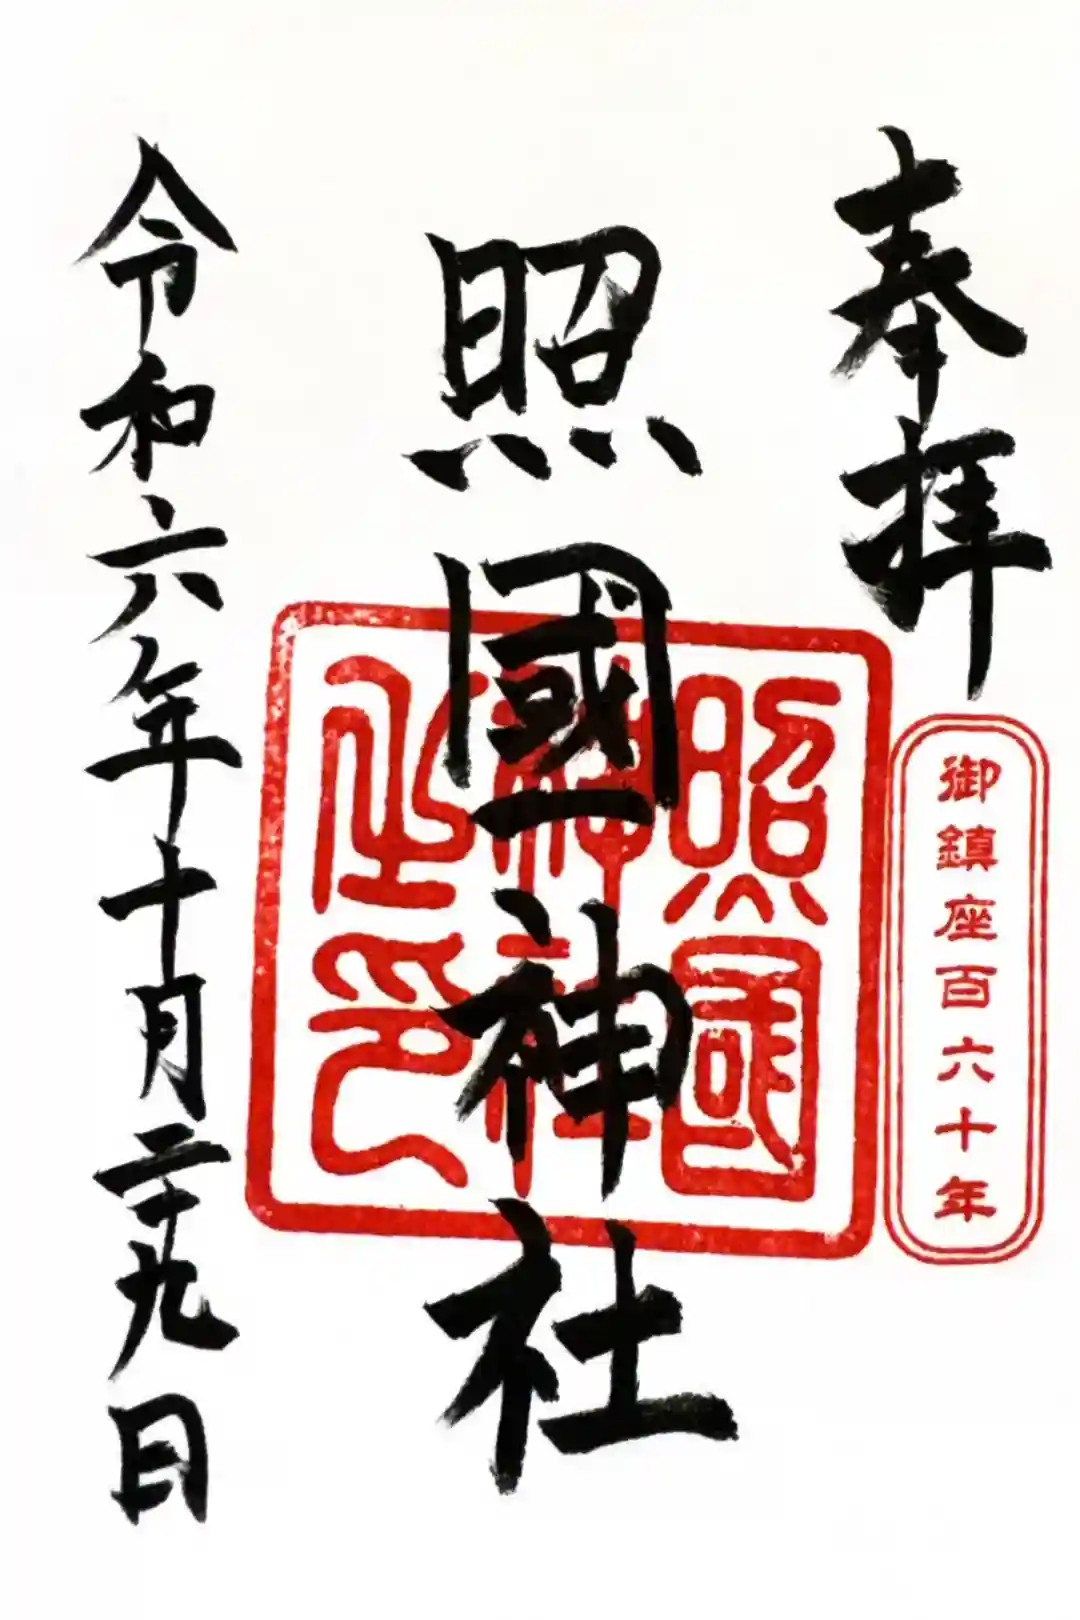 奉拝
御鎮座百六十年
照國神社
照國神社之印
令和六年十月二十九日